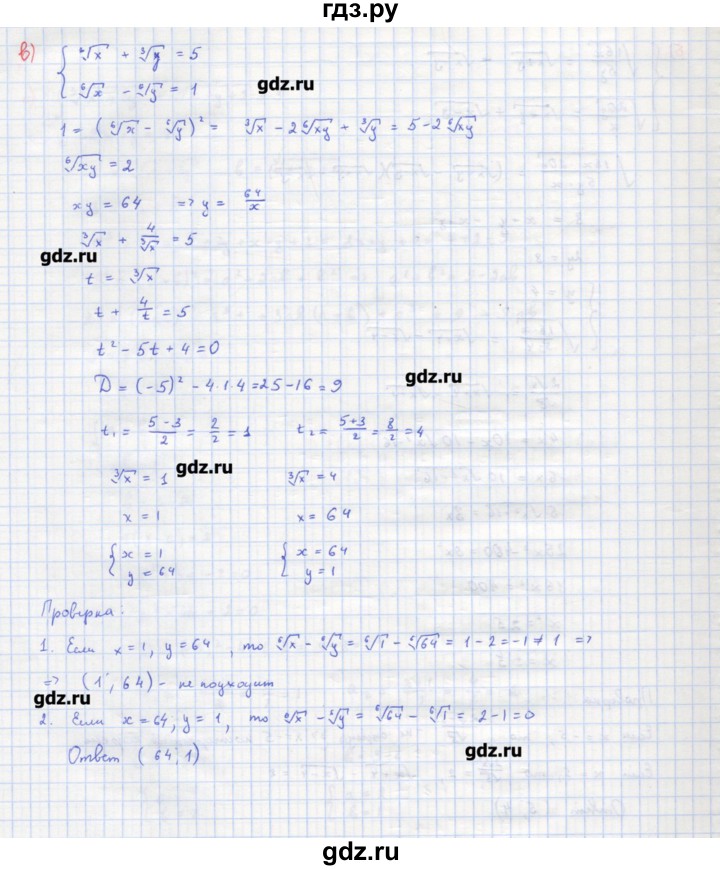 гдз.ру
в) { ∛x + ∛y = 5
gdz.ru
{ ⁶√x - ⁶√y = 1
1 = (⁶√x - ⁶√y)² = ∛x - 2⁶√xy + ∛y = 5 - 2⁶√xy
⁶√xy = 2
xy = 64 => y = 64/x
∛x + 4/∛x = 5
gdz.ru
t = ∛x
t + 4/t = 5
t² - 5t + 4 = 0
gdz.ru
D = (-5)² - 4·1·4 = 25 - 16 = 9
t₁ = (5-3)/2 = 2/2 = 1 t₂ = (5+3)/2 = 8/2 = 4
gdz.ru
∛x = 1 ∛x = 4
x = 1 x = 64
{ x = 1 { x = 64
{ y = 64 { y = 1
Проверка:
1. Если x = 1, y = 64, то ⁶√x - ⁶√y = ⁶√1 - ⁶√64 = 1 - 2 = -1 ≠ 1 =>
=> (1; 64) - не подходит
gdz.ru
2. Если x = 64; y = 1, то ⁶√x - ⁶√y = ⁶√64 - ⁶√1 = 2 - 1 = 0
gdz.ru
Ответ (64; 1)
gdz.ru